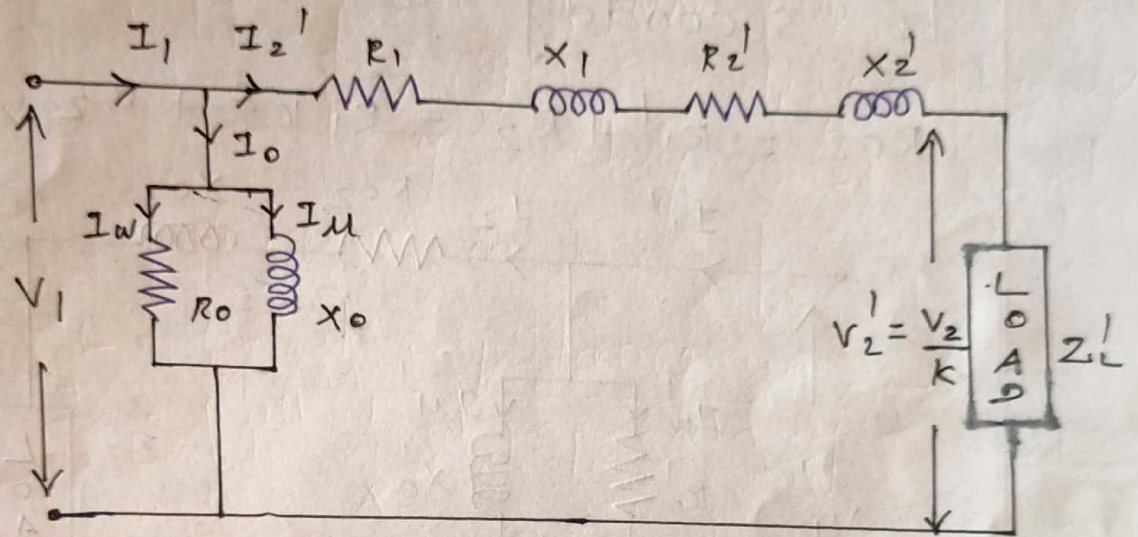 I₁ I₂' R₁ X₁ R₂' X₂'
I₀
Iω Iμ
V₁ R₀ X₀
V₂' = V₂/K
LOAD
Z_L'